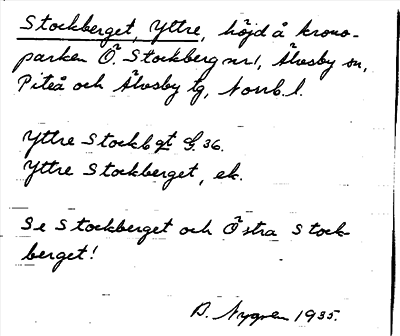 Stockberget, Yttre, höjd å krono-
parken Ö. Stockberg nr 1, Älvsby sn,
Piteå och Älvsby tg, Norrb. l.
Yttre Stockbgt G. 36.
Yttre Stockberget, ek.
Se Stockberget och Östra Stock-
berget!
D. Nygren 1935.